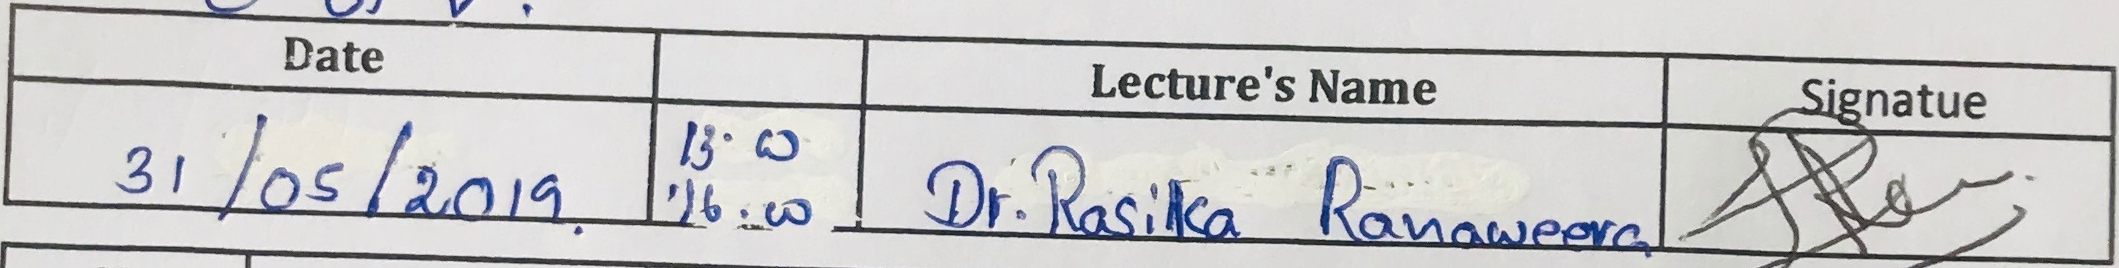 Date Lecture's Name Signatue
31/05/2019. 13.00 Dr. Rasika Ranaweera
16.00